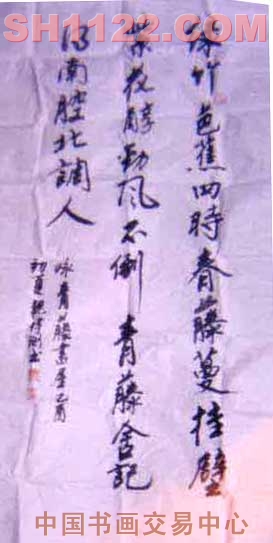 SH1122.COM
绿竹芭蕉四時春藤蔓挂壁
紫花醇勁风不倒青藤舍記
得南腔北調人
咏青藤書屋乙酉
初夏
中国书画交易中心